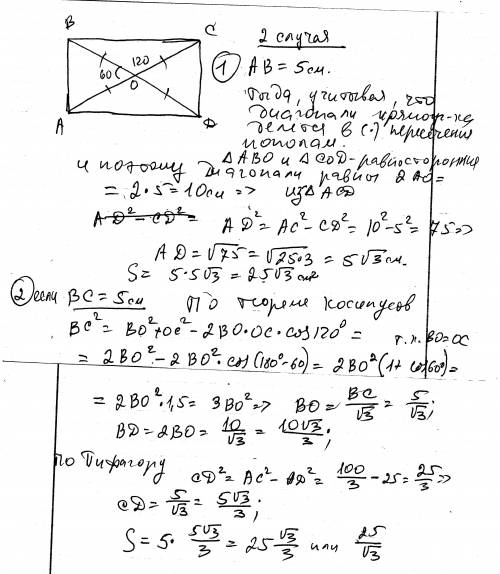 B
C
120
60
O
A
D
2 случая
① AB = 5 см.
Тогда, учитывая, что
диагонали прямоуг-ка
делятся в (·) пересечения
пополам.
△ABO и △COD - равносторонние
и поэтому диагонали равны 2AO =
= 2·5 = 10см => из △ACD
AD² - CD² =
AD² = AC² - CD² = 10² - 5² = 75 =>
AD = √75 = √25·3 = 5√3 см.
S = 5·5√3 = 25√3 см²
② если BC = 5см По теореме косинусов
BC² = BO² + OC² - 2BO·OC·cos120° = т.к. BO = OC
= 2BO² - 2BO²·cos(180°-60) = 2BO²(1 + cos60°) =
= 2BO²·1,5 = 3BO² => BO = BC/√3 = 5/√3;
BD = 2BO = 10/√3 = 10√3/3;
по Пифагору
CD² = AC² - AD² = 100/3 - 25 = 25/3 =>
CD = 5/√3 = 5√3/3;
S = 5· 5√3/3 = 25 √3/3 или 25/√3